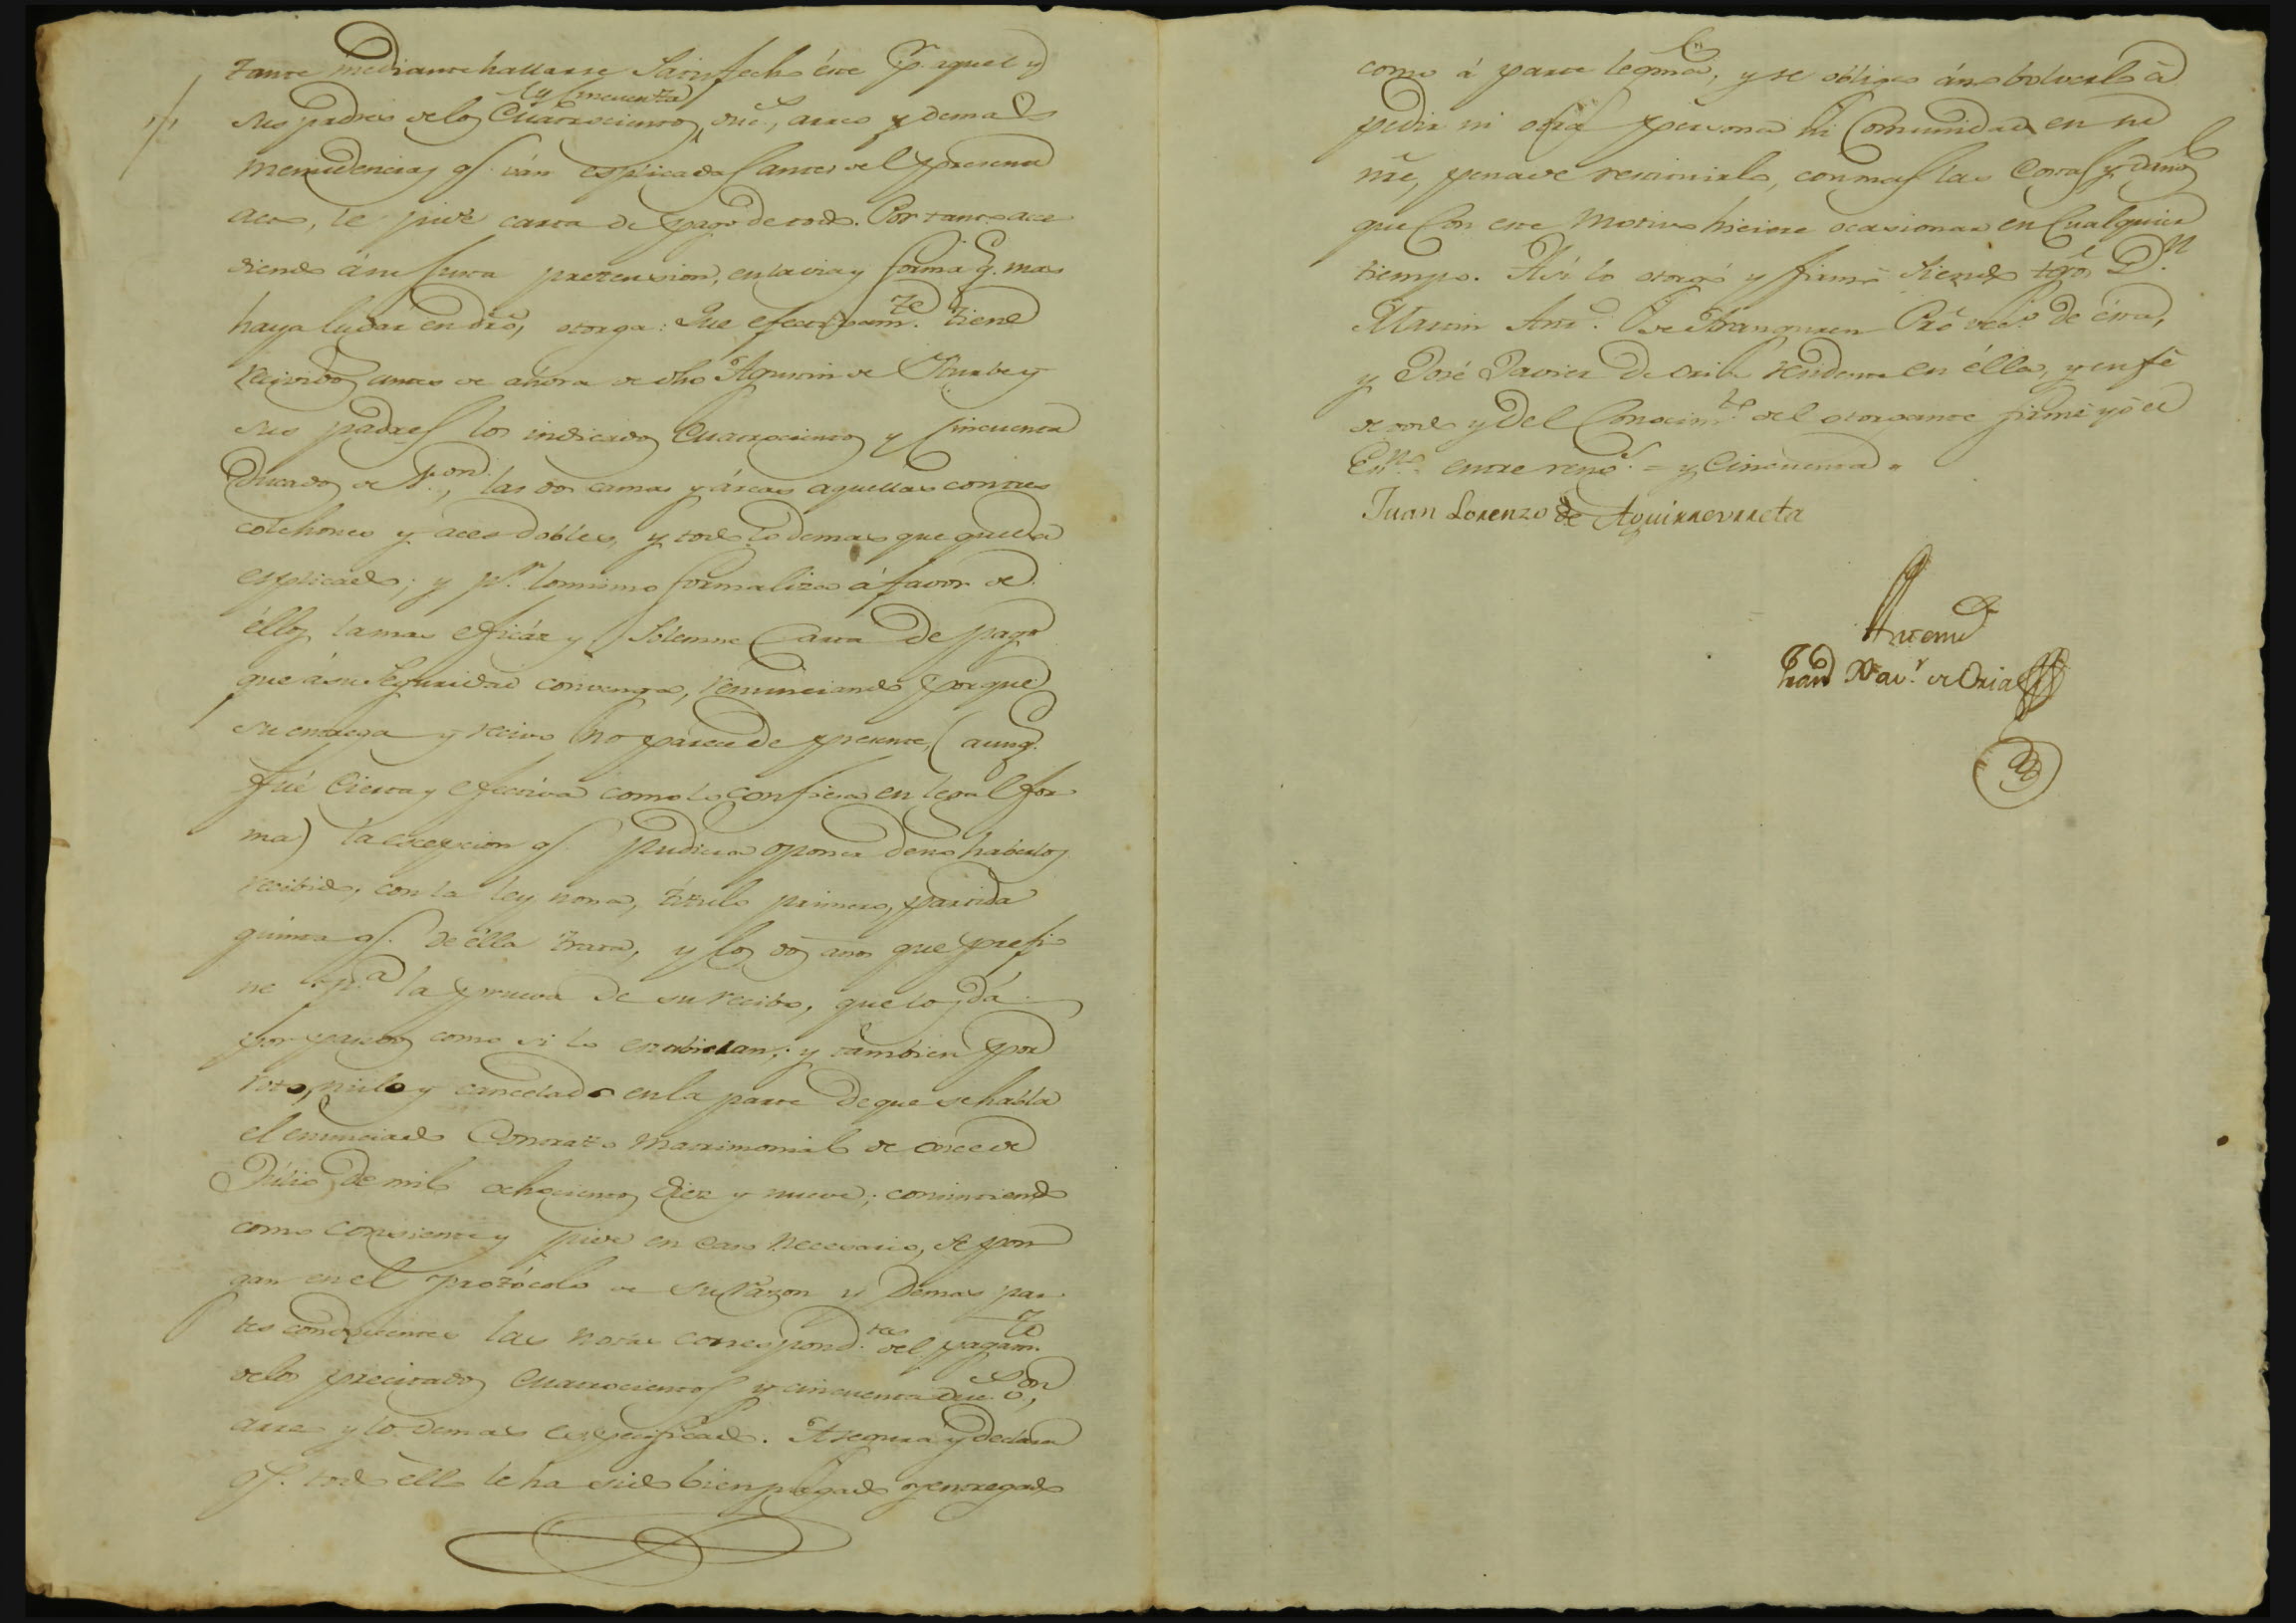 tante mediante hallarse Satisfecho éste p.r aquel y
sus padres de los Cuatrocientos, duc.s, arreo y demas
y Cincuenta
menudencias q.e ván esplicadas antes del presente
acto, le pide carta de pago de todo. Por tanto acce
diendo á su justa pretension, en la via y forma q.e mas
haya lugar en dro, otorga: Que efectivam.te tiene
recividos antes de ahora de dho Agustin de Yturbe y
sus padres los indicados Cuatrocientos y Cincuenta
Ducados de v.on, las dos camas y árcas aquellas con tres
colchones y aces dobles, y todo lo demas que queda
esplicado; y p.r lo mismo formaliza á favor de
éllos la mas eficáz y Solemne Carta De pago
que á su Seguridad convenga, renunciando porque
su entrega y recivo no parece de presente, (aunq.e
fué Cierta y efectiva como lo confiesa en legal for
ma) la excepcion q.e pudiera oponer de no haberlos
recibido, con la ley nona, titulo primero, partida
quinta q.e de élla trata, y los dos años que prefi
ne p.a la prueva de su recibo, que los dá
por pasados como si lo estubieran; y tambien por
roto, nulo y cancelado en la parte de que se habla
el enunciado Contrato Matrimonial de once de
Júlio de mil ochocientos diez y nueve; consintiendo
como consiente y pide en caso necesario, se pon
gan en el protócolo de su razon y Demas par
tes conducentes las notas correspond.tes del pagam.to
de los precitados Cuatrocientos y cincuenta duc.s v.on,
arreo y lo demas especificado. Asegura y declara
q.e todo ello le ha sido bien pagado y entregado
como á parte legitima, y se obliga á no bolverlo á
pedir ni otra persona ni Comunidad en su
nre, pena de restituirlo, con mas las Costas y daños
que Con este motivo hiciere ocasionar en Cualquier
tiempo. Así lo otorgó y firmó siendo tgos D.n
Martin Ant.o de Aranguren Pro vec.o de ésta,
y José Javier de Oria residente en élla, y en fé
de todo y Del Conocim.to del otorgante firmé yo el
Es.no entre reng.s = y Cincuenta =
Juan Lorenzo de Aguirreurreta
Ante mi
Xav.r de Oria